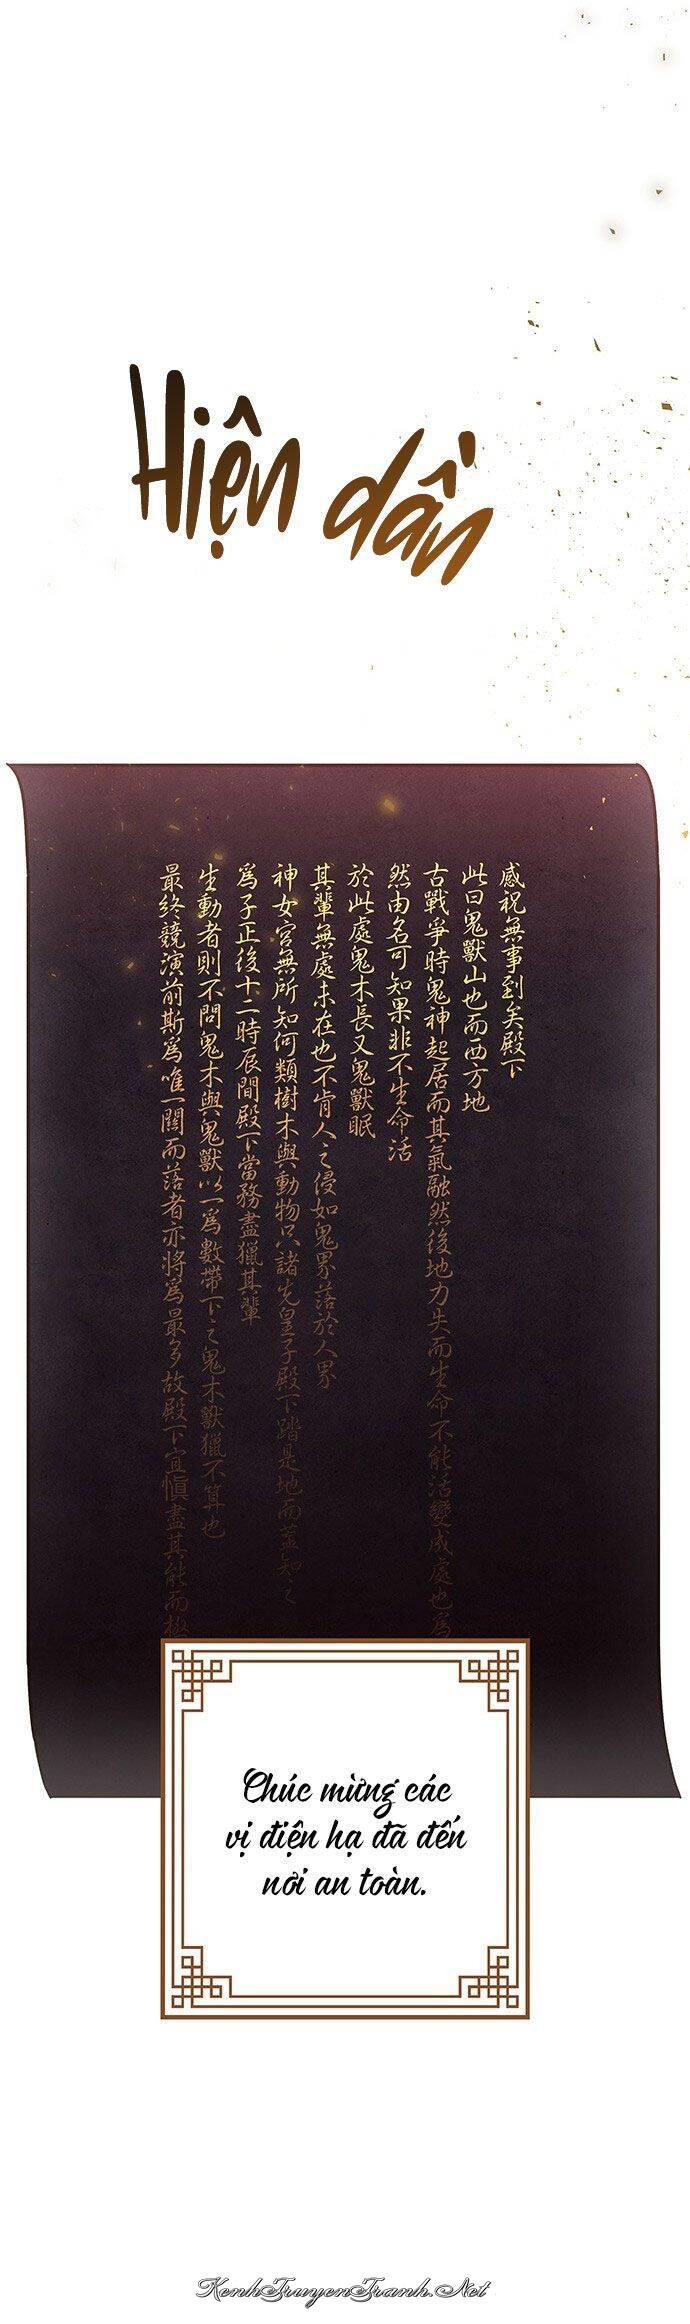 Hiện dần
感祝無事到矣殿下
此曰鬼獸山也而西方地
古戰爭時鬼神起居而其氣融然後地力失而生命不能活變成處也爲
然由名可知果非不生命活
於此處鬼木長又鬼獸眠
其輩無處未在也不肯人之侵如鬼界落於人界
神女宮無所知何類樹木與動物只諸先皇子殿下踏是地而蓋知之
爲子正後十二時辰間殿下當務盡獵其輩
生動者則不問鬼木與鬼獸以一爲數帶下之鬼木獸獵不算也
最終競演前斯爲唯一關而落者亦將爲最多故殿下宜愼盡其能而極
Chúc mừng các
vị điện hạ đã đến
nơi an toàn.
KenhTruyenTranh.Net